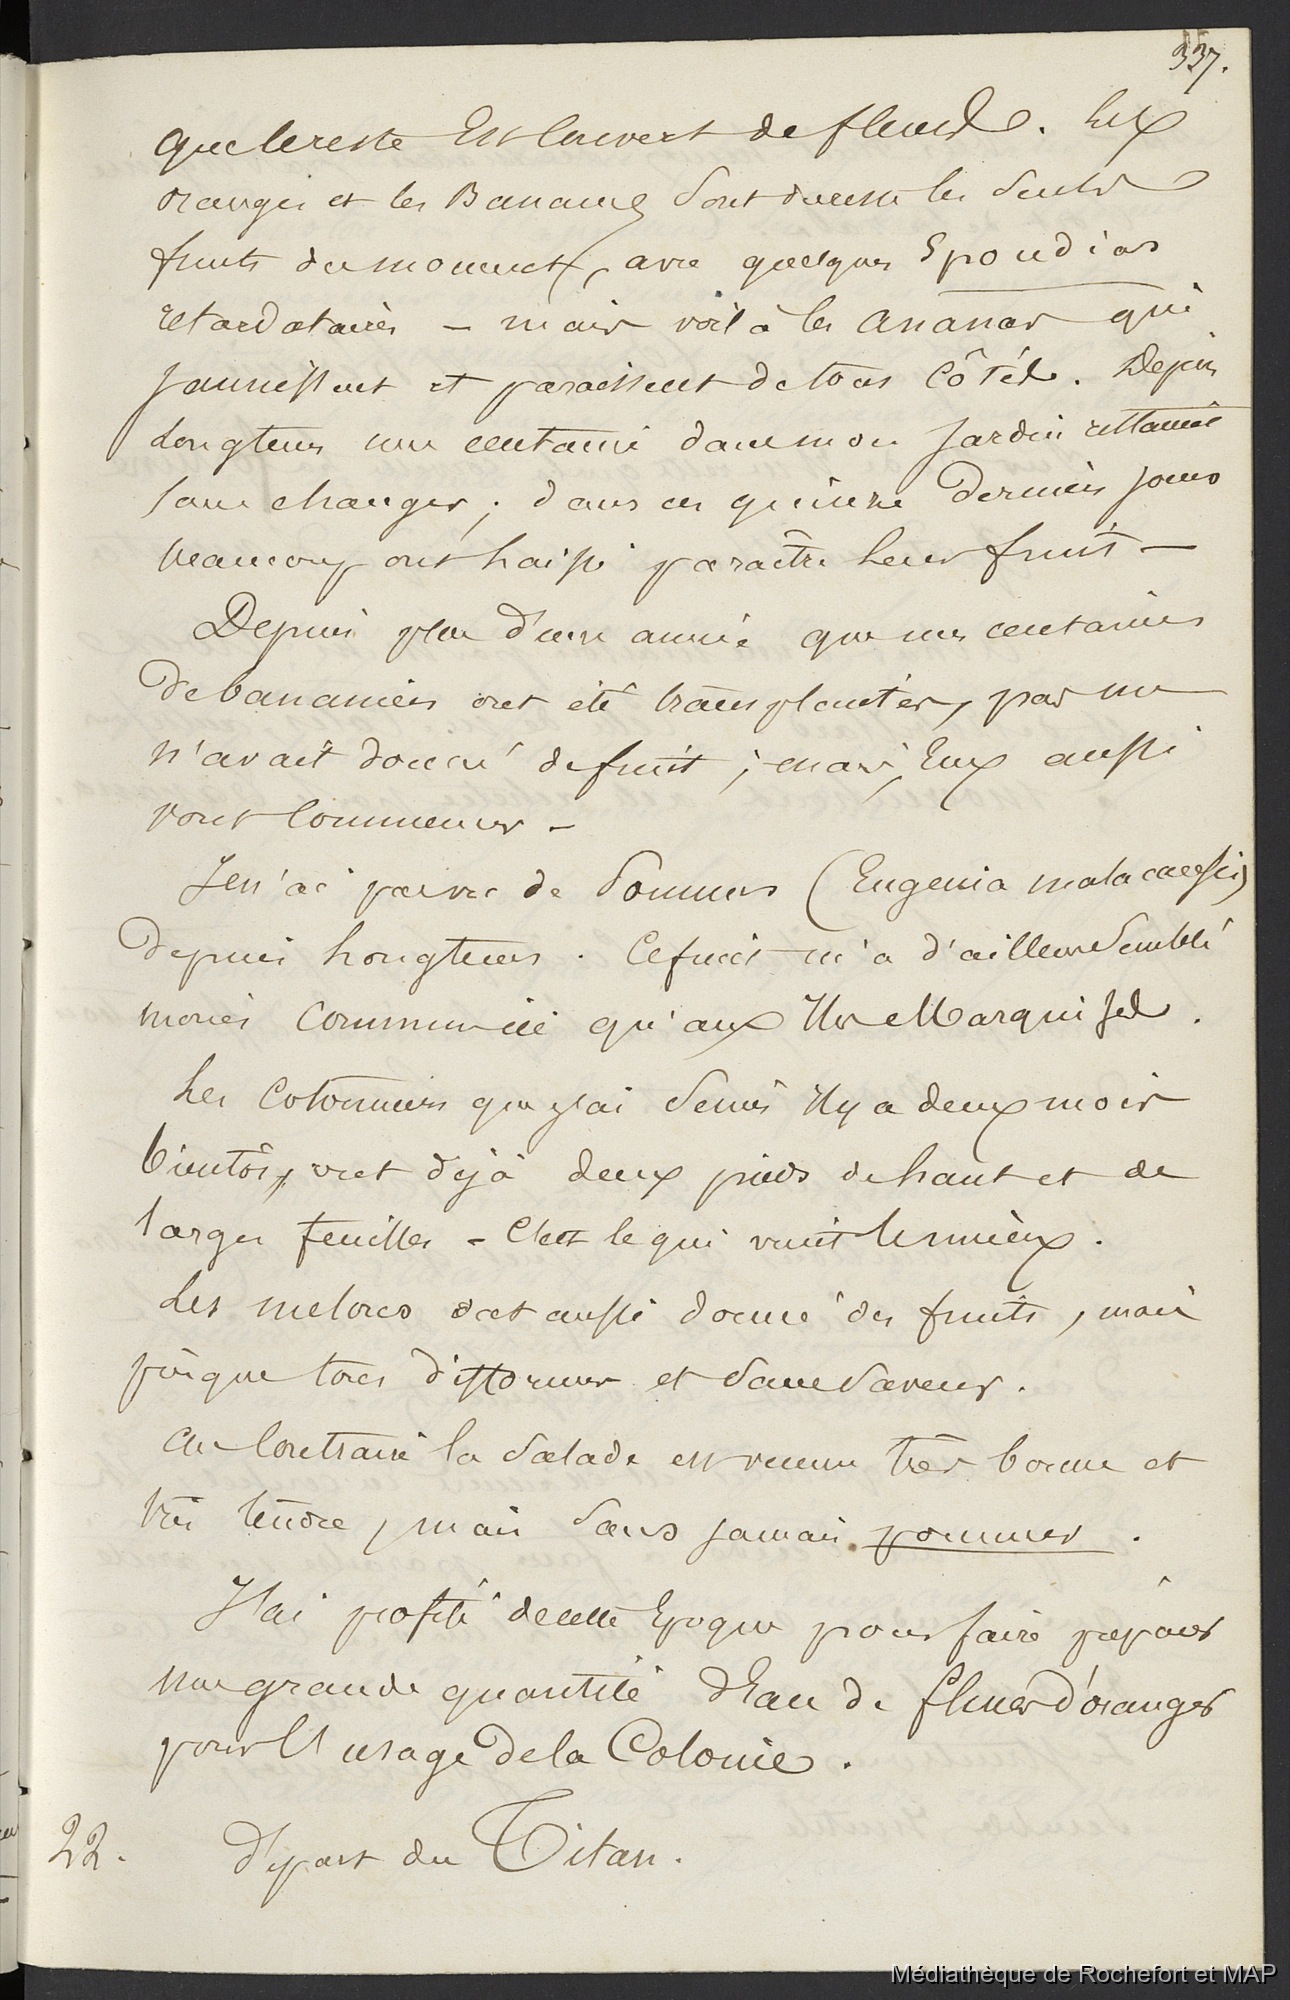 337.
que le reste Est couvert de fleurs. Les
oranges et les Bananes sont du reste les seuls
fruits du moment, avec quelques Spondias
retardataires – mais voilà les ananas qui
jaunissent et paraissent de tous côtés. Depuis
longtems une centaine dans mon jardin restaient
sans changer ; dans ces quinze derniers jours
beaucoup ont laissé paraitre leur fruit –
Depuis plus d'une année que mes centaines
de bananiers ont été transplantés, pas un
n'avait donné de fruit ; mais, Eux aussi
vont commencer –
Je n'ai pas vu de Pommes (Eugenia malaccessis)
depuis longtems. Ce fruit m'a d'ailleurs semblé
moins commun ici qu'aux Iles Marquises.
Les cotonniers que j'ai semés il y a deux mois
bientôt, ont déjà deux pieds de haut et de
larges feuilles – C'est ce qui vient le mieux.
Les melons ont aussi donné des fruits, mais
presque tous difformes et sans saveur.
Au contraire la salade est venue très bonne et
très tendre, mais sans jamais pommer.
J'ai profité de cette Epoque pour faire préparer
une grande quantité d'Eau de fleurs d'oranger
pour l'usage de la Colonie.
22. Départ du Titan.
Médiathèque de Rochefort et MAP